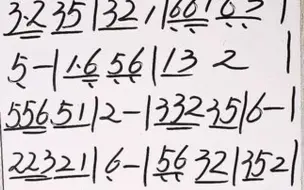 3·2 35|32 1|661 6 5|
5-|1·6 56|13 2|
556 51|2-|332 35|6-|
22321|6-|56 32|352|